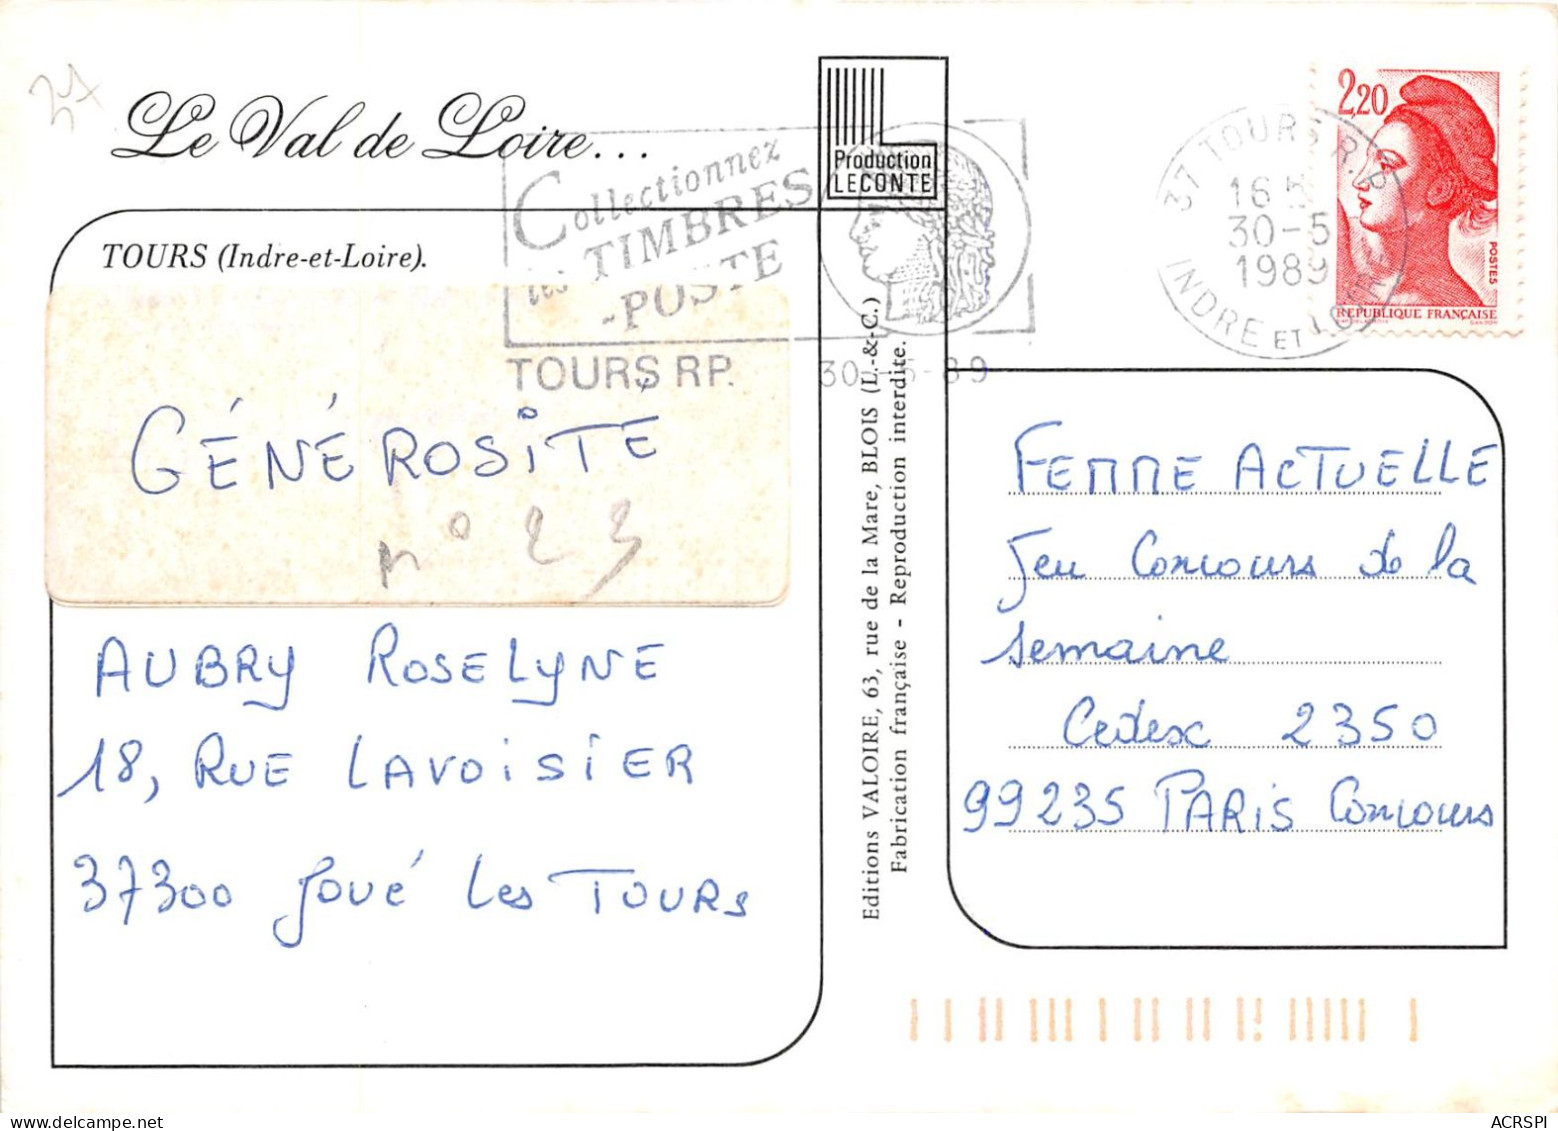 37
Le Val de Loire...
TOURS (Indre-et-Loire).
Production
LECONTE
Collectionnez
les TIMBRES
-POSTE
TOURS RP.
30-5-89
37 TOURS R.P
16 H
30-5
1989
INDRE ET LOIRE
2,20
POSTES
REPUBLIQUE FRANÇAISE
GÉNÉROSITÉ
n° 23
AUBRY ROSELYNE
18, RUE LAVOISIER
37300 Joué les TOURS
Editions VALOIRE, 63, rue de la Mare, BLOIS (L.-&-C.)
Fabrication française - Reproduction interdite.
FEMME ACTUELLE
Jeu Concours de la
semaine
Cedex 2350
99235 PARIS Concours
ACRSPI